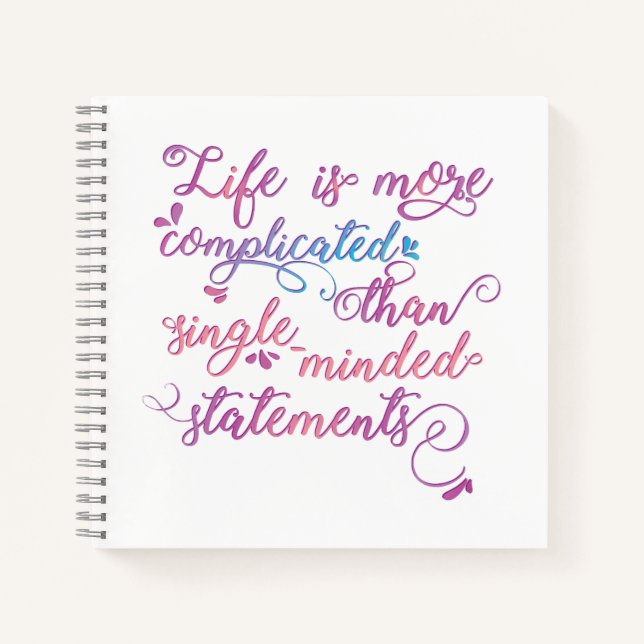 Life is more
complicated
than
single-minded
statements